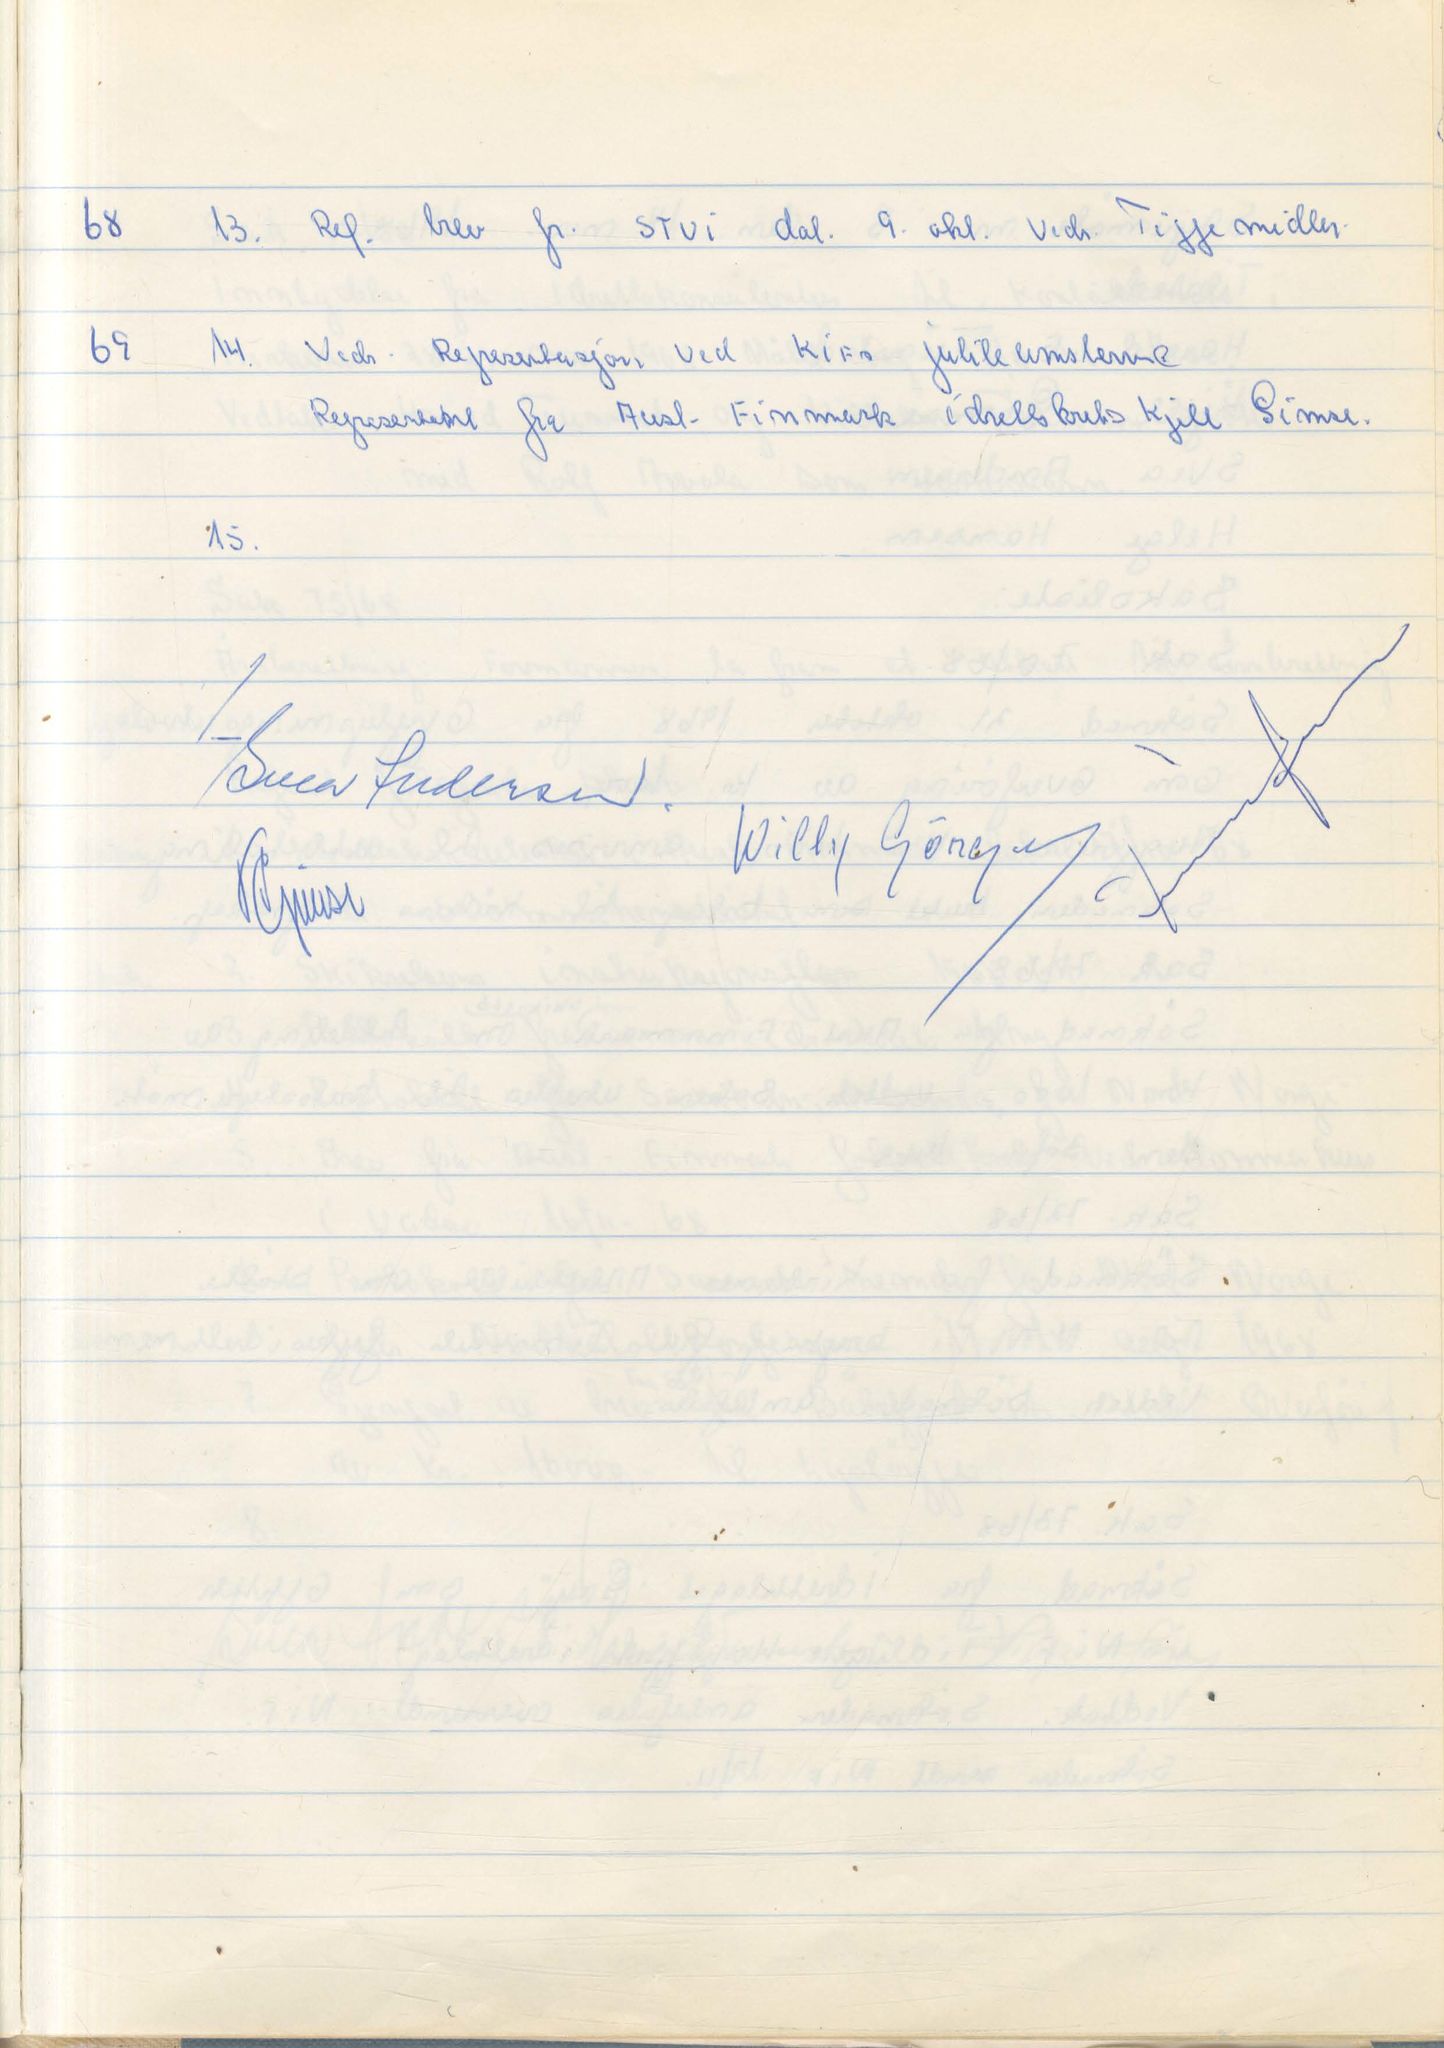 68 13. Ref. brev fr. STUI dat. 9. okt. Vedr. Tippemidler.
69 14. Vedr. Representasjon ved KIFs jubileumsstevne
Representant fra Aust-Finmark idrettskrets Kjell Simse.
15.
Svea Andersen.
Willy Görgen
KSimse